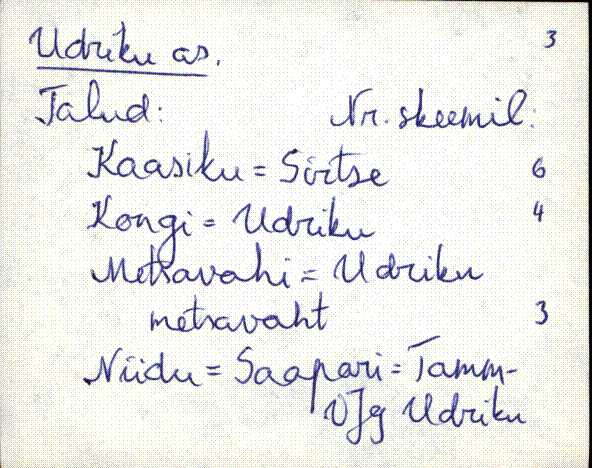 Udriku as. 3
Talud: Nr. skeemil:
Kaasiku = Sirtse 6
Kongi = Udriku 4
Metsavahi = Udriku
metsavaht 3
Niidu = Saapari = Tamm-
Udriku